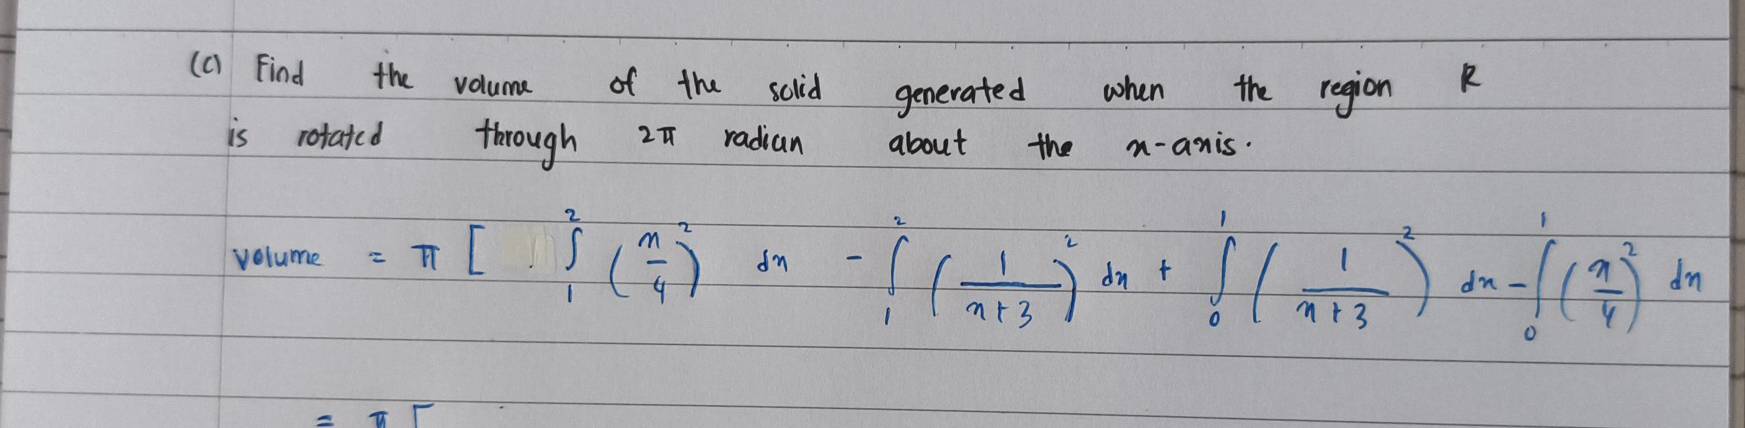 (c) Find the volume of the solid generated when the region R
is rotated through 2π radian about the x-axis.
volume = π [ ∫₁² (x/4)² dx - ∫₁² (1/(x+3))² dx + ∫₀¹ (1/(x+3))² dx - ∫₀¹ (x/4)² dx
= π [